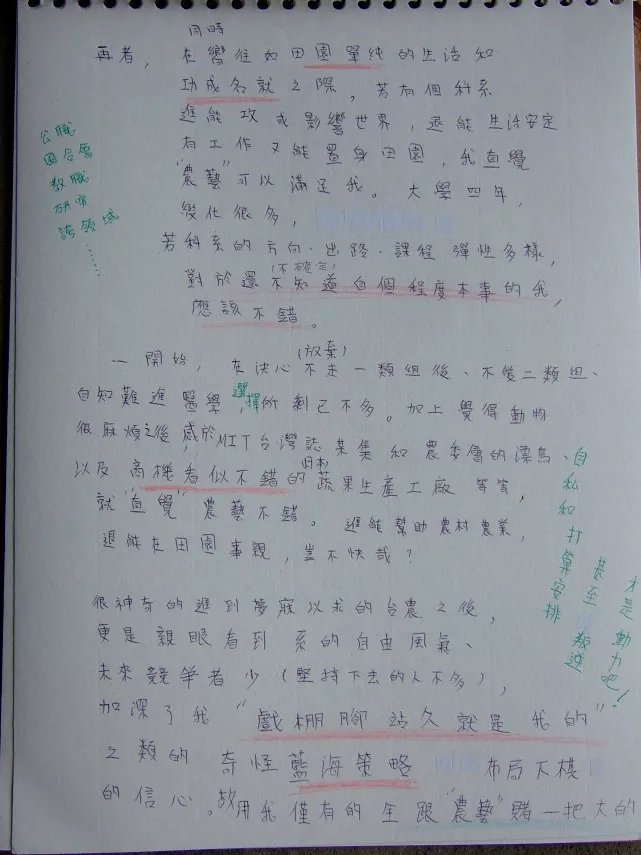 同時
再者，在嚮往如田園單純的生活和
功成名就之際，若有個科系
進能攻成影響世界，退能生活安定
有工作又能置身田園，我直覺
"農藝"可以滿足我。大學四年，
變化很多，
若科系的方向、出路、課程彈性多樣，
(不確定)
對於還不知道自個程度本事的我，
應該不錯。
公職
園合會
教職
研究
誇領域
......
(放棄)
一開始，在決心不走一類組後、不愛二類組、
自知難進醫學，選擇所剩已不多。加上覺得動物
很麻煩之後，感於MIT台灣誌某集和農委會的漂鳥、
(日本)
以及商機看似不錯的蔬果生產工廠等等，
就"直覺"農藝不錯。進能幫助農村農業，
退能在田園事親，豈不快哉？
自私和打算安排
甚至叛逆
才是動力吧！
很神奇的進到夢寐以求的台農之後，
更是親眼看到系的自由風氣、
未來競爭者少(堅持下去的人不多)，
加深了我"戲棚腳站久就是我的"
之類的奇怪藍海策略 布局下棋
的信心。故用我僅有的全跟"農藝"賭一把大的